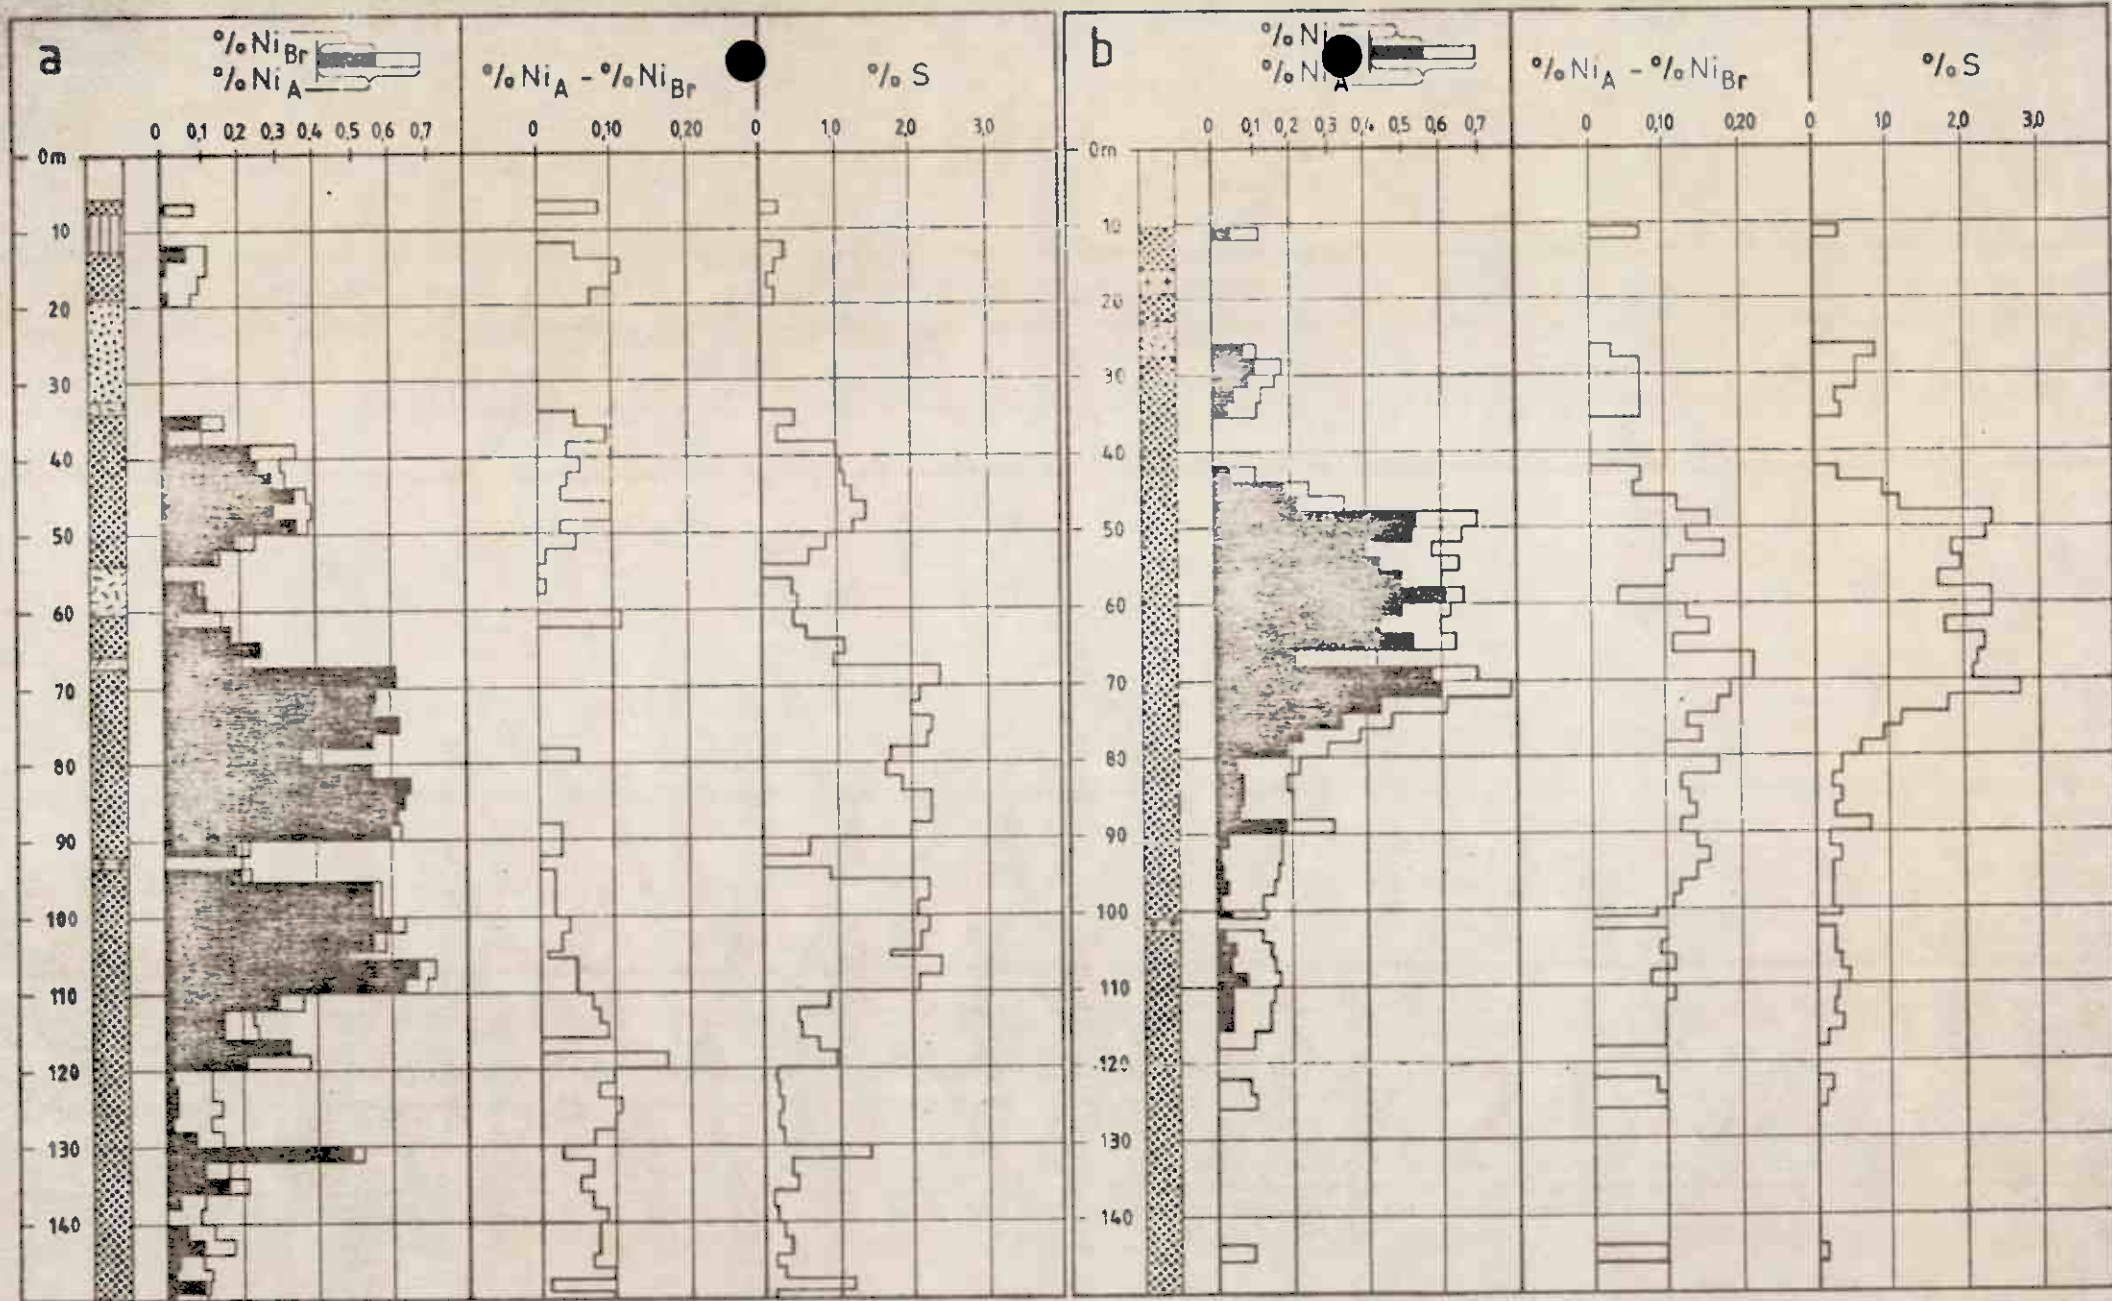 a
%Ni Br
%Ni A
%Ni A - %Ni Br
%S
0 0,1 0,2 0,3 0,4 0,5 0,6 0,7
0 0,10 0,20
0 1,0 2,0 3,0
0m
10
20
30
40
50
60
70
80
90
100
110
120
130
140
b
%Ni
%Ni A
%Ni A - %Ni Br
%S
0 0,1 0,2 0,3 0,4 0,5 0,6 0,7
0 0,10 0,20
0 10 2,0 3,0
0m
10
20
30
40
50
60
70
80
90
100
110
120
130
140